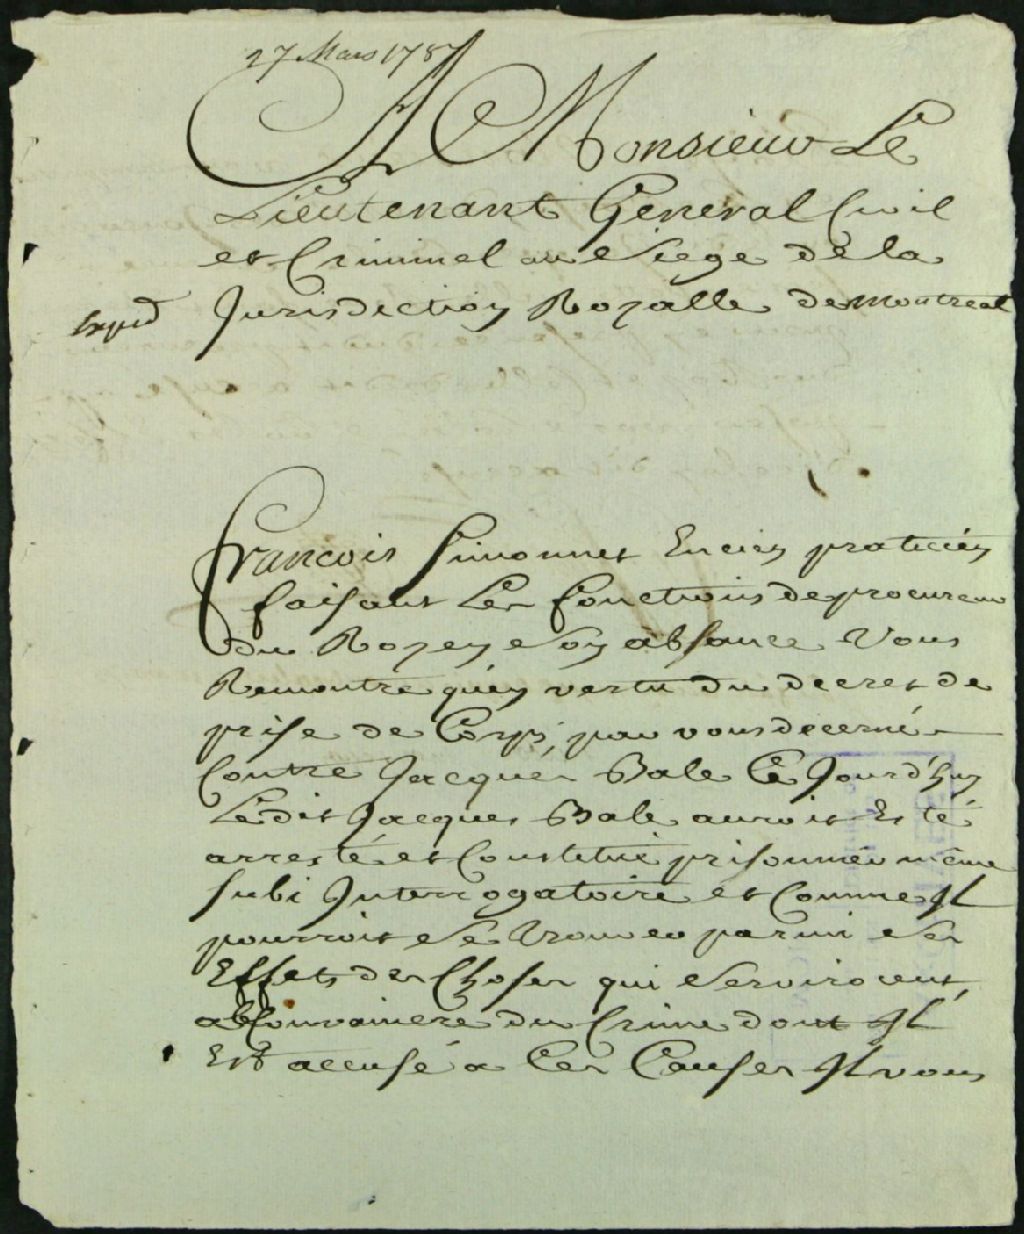 27 Mars 1737
A Monsieur Le
Lieutenant General Civil
et Criminel au Siege de la
Jurisdiction Royalle de Montreal
François Simonnet Encien praticien
faisant Les fonctions de procureur
du Roy en Son absance Vous
Remontre qu'en vertu du decret de
prise de Corps, par vous decerné
Contre Jacques Bale Ce Jourd'huy
Ledit Jacques Bale auroit Esté
arresté et Constitué prisonnier même
subi Interrogatoire et Comme Il
pourroit Se Trouver parmi Ses
Effets des Choses qui Serviroient
a Convaincre du Crime dont Il
Est accusé a Ces Causes Il vous